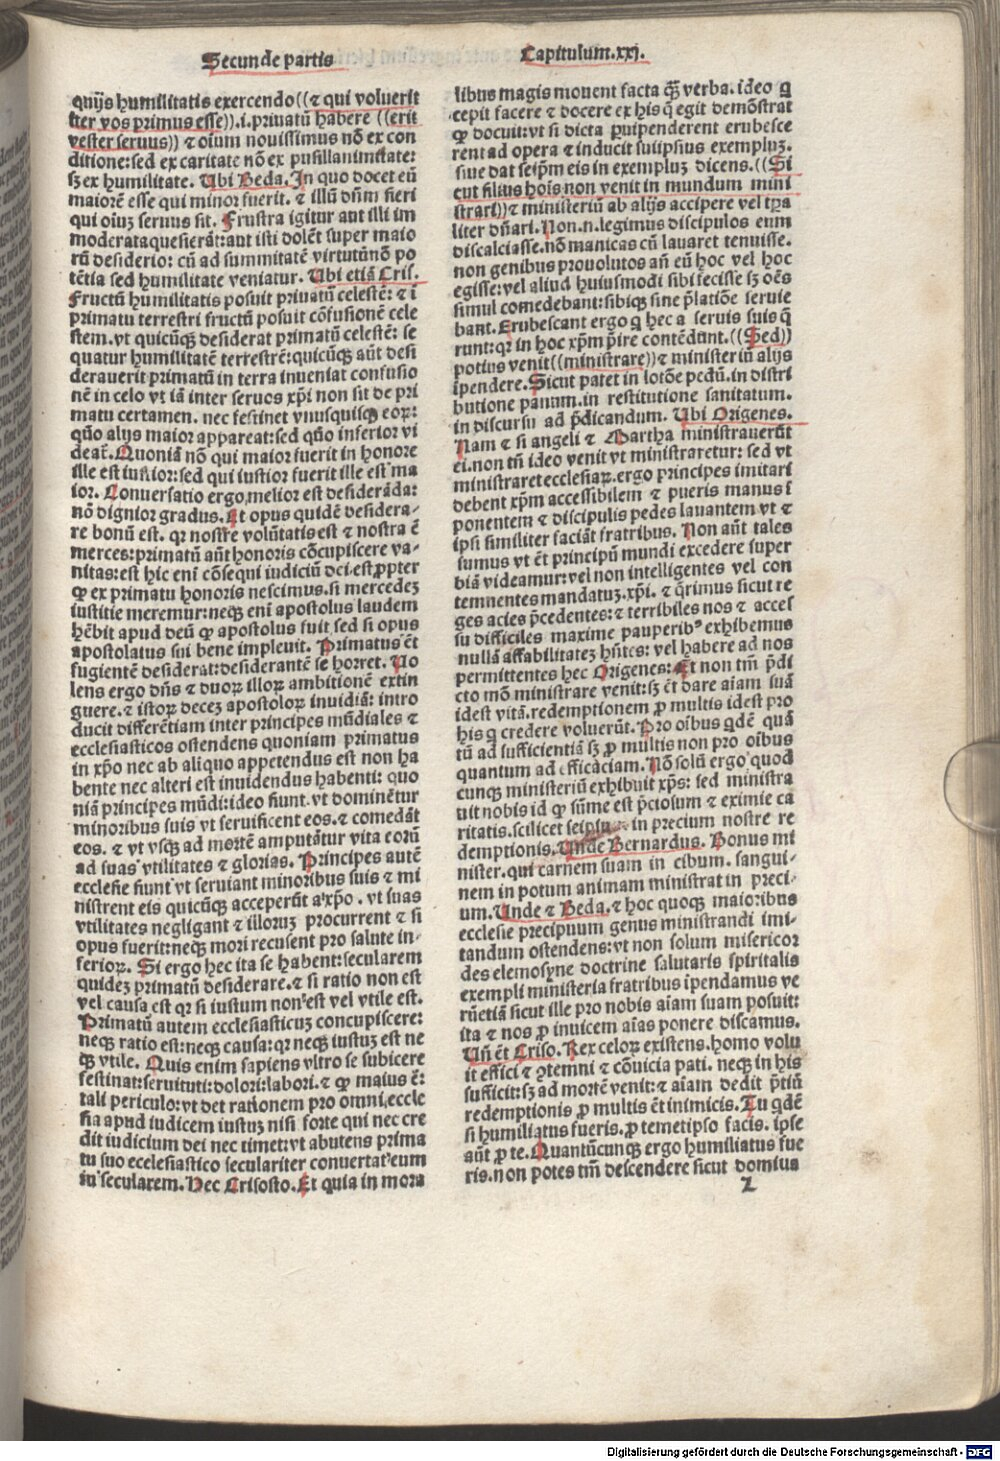 Secunde partis
Capitulum.xxj.
quijs humilitatis exercendo((⁊ qui voluerit
iter vos primus esse)).i.priuatū habere ((erit
vester seruus)) ⁊ oīum nouissimus nō ex con
ditione:sed ex caritate nō ex pusillanimitate:
sꝫ ex humilitate. Ubi Beda. In quo docet eū
maiorē esse qui minor fuerit. ⁊ illū dn̄m fieri
qui oīuꝫ seruus sit. Frustra igitur aut illi im
moderata quesierāt:aut isti dolēt super maio
rū desiderio: cū ad summitatē virtutū nō po
tētia sed humilitate veniatur. Ubi etiā Cris.
Fructū humilitatis posuit priuatū celestē: ⁊ ī
primatu terrestri fructū posuit cōfusionē cele
stem.vt quicūqꝫ desiderat primatū celestē: se
quatur humilitatē terrestrē:quicūqꝫ aūt desi
derauerit primatū in terra inueniat confusio
nē in celo vt iā inter seruos xp̄i non sit de pri
matu certamen. nec festinet vnusquisqꝫ eoꝝ:
quō alijs maior appareat:sed quō inferior vi
deat̄. Quoniā nō qui maior fuerit in honore
ille est iustior:sed qui iustior fuerit ille est ma
ior. Conuersatio ergo melior est desiderāda:
nō dignior gradus. Et opus quidē desidera-
re bonū est. qꝛ nostre volūtatis est ⁊ nostra ē
merces:primatū aūt honoris cōcupiscere va-
nitas:est hic enī cōsequi iudiciū dei.est ꝓpter
ꝙ ex primatu honoris nescimus.si mercedeꝫ
iustitie meremur:neqꝫ enī apostolus laudem
hēbit apud deū ꝙ apostolus fuit sed si opus
apostolatus sui bene impleuit. Primatus ēt
fugientē desiderat:desiderantē se horret. No
lens ergo dn̄s ⁊ duoꝝ illoꝝ ambitionē extin
guere.⁊ istoꝝ deceꝫ apostoloꝝ inuidiā: intro
ducit differētiam inter principes mūdiales ⁊
ecclesiasticos ostendens quoniam primatus
in xp̄o nec ab aliquo appetendus est non ha
bente nec alteri est inuidendus habenti: quo
niā principes mūdi:ideo fiunt.vt dominētur
minoribus suis vt seruificent eos.⁊ comedāt
eos. ⁊ vt vsqꝫ ad mortē amputātur vita eorū
ad suas vtilitates ⁊ glorias. Principes autē
ecclesie fiunt vt seruiant minoribus suis ⁊ mi
nistrent eis quicūqꝫ acceperūt a xp̄o . vt suas
vtilitates negligant ⁊ illoruꝫ procurrent ⁊ si
opus fuerit:neqꝫ mori recusent pro salute in-
ferioꝝ. Si ergo hec ita se habent:secularem
quideꝫ primatū desiderare.⁊ si ratio non est
vel causa est qꝛ si iustum non est vel vtile est.
Primatū autem ecclesiasticuꝫ concupiscere:
neqꝫ ratio est:neqꝫ causa:qꝛ neqꝫ iustuꝫ est ne
qꝫ vtile. Quis enim sapiens vltro se subicere
festinat:seruituti:dolori:labori.⁊ ꝙ maius ē:
tali periculo:vt det rationem pro omni eccle
sia apud iudicem iustuꝫ nisi forte qui nec cre
dit iudicium dei nec timet:vt abutens prima
tu suo ecclesiastico seculariter conuertat eum
in secularem. Hec Crisosto. Et quia in mora
libus magis mouent facta qꝫ verba. ideo q
cepit facere ⁊ docere ex his q̄ egit demōstrat
ꝙ docuit:vt si dicta ꝑuipenderent erubesce
rent ad opera ⁊ inducit suiipsius exempluꝫ.
siue dat seip̄m eis in exempluꝫ dicens.((Si
cut filius hoīs non venit in mundum mini
strari))⁊ ministeriū ab alijs accipere vel tꝑa
liter dn̄ari. Non.n.legimus discipulos eum
discalciasse.nō manicas cū lauaret tenuisse.
non genibus prouolutos an̄ eū hoc vel hoc
egisse:vel aliud huiusmodi sibi fecisse sꝫ oēs
simul comedebant:sibiqꝫ sine p̄latiōe seruie
bant. Erubescant ergo q hec a seruis suis q̄
runt:qꝛ in hoc xp̄m p̄ire contēdunt.((Sed))
potius venit((ministrare))⁊ ministeriū alijs
īpendere. Sicut patet in lotōe pedū.in distri
butione panum.in restitutione sanitatum.
in discursu ad p̄dicandum. Ubi Origenes.
Nam ⁊ si angeli ⁊ Martha ministrauerūt
ei.non tn̄ ideo venit vt ministraretur: sed vt
ministraret ecclesiaꝝ.ergo principes imitari
debent xp̄m accessibilem ⁊ pueris manus ī
ponentem ⁊ discipulis pedes lauantem vt ⁊
ipsi similiter faciāt fratribus. Non aūt tales
sumus vt ēt principū mundi excedere super
biā videamur:vel non intelligentes vel con
temnentes mandatuꝫ.xp̄i. ⁊ q̄rimus sicut re
ges acies p̄cedentes:⁊ terribiles nos ⁊ acces
su difficiles maxime pauperibꝰ exhibemus
nullā affabilitateꝫ hn̄tes: vel habere ad nos
permittentes hec Origenes: Et non tm̄ p̄di
cto mō ministrare venit:sꝫ ēt dare aīam suā
idest vitā.redemptionem ꝓ multis idest pro
his q credere voluerūt. Pro oībus qdē quā
tū ad sufficientiā sꝫ ꝓ multis non pro oībus
quantum ad efficaciam. Nō solū ergo quod
cunqꝫ ministeriū exhibuit xp̄s: sed ministra
uit nobis id ꝙ sūme est p̄ciosum ⁊ eximie ca
ritatis.scilicet seipsum in precium nostre re
demptionis. Unde Bernardus. Bonus mi
nister.qui carnem suam in cibum. sangui-
nem in potum animam ministrat in preci-
um. Unde ⁊ Beda.⁊ hoc quoqꝫ maioribus
ecclesie precipuum genus ministrandi imi-
tandum ostendens:vt non solum misericor
des elemosyne doctrine salutaris spiritalis
exempli ministeria fratribus īpendamus ve
rūetiā sicut ille pro nobis aīam suam posuit:
ita ⁊ nos ꝓ inuicem aīas ponere discamus.
Un̄ ēt Criso. Rex celoꝝ existens.homo volu
it effici ⁊ ꝯtemni ⁊ cōuicia pati. neqꝫ in his
suffficit:sꝫ ad mortē venit:⁊ aīam dedit p̄tiū
redemptionis ꝓ multis ēt inimicis. Tu qdē
si humiliatus fueris.ꝓ temetipso facis. ipse
aūt ꝓ te. Quantūcunqꝫ ergo humiliatus fue
ris.non potes tm̄ descendere sicut domius
z
Digitalisierung gefördert durch die Deutsche Forschungsgemeinschaft - DFG